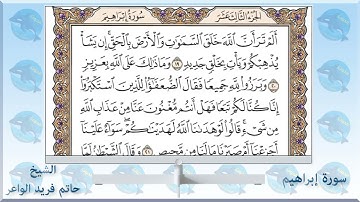 سورة إبراهيم
الجزء الثالث عشر
ألم تر أن الله خلق السموات والأرض بالحق إن يشأ
يذهبكم ويأت بخلق جديد ١٩ وما ذلك على الله بعزيز
٢٠ وبرزوا لله جميعا فقال الضعفؤا للذين استكبروا
إنا كنا لكم تبعا فهل أنتم مغنون عنا من عذاب الله
من شىء قالوا لو هدىنا الله لهدينكم سواء علينا
أجزعنا أم صبرنا ما لنا من محيص ٢١ وقال الشيطن لما
سورة إبراهيم
الشيخ
حاتم فريد الواعر